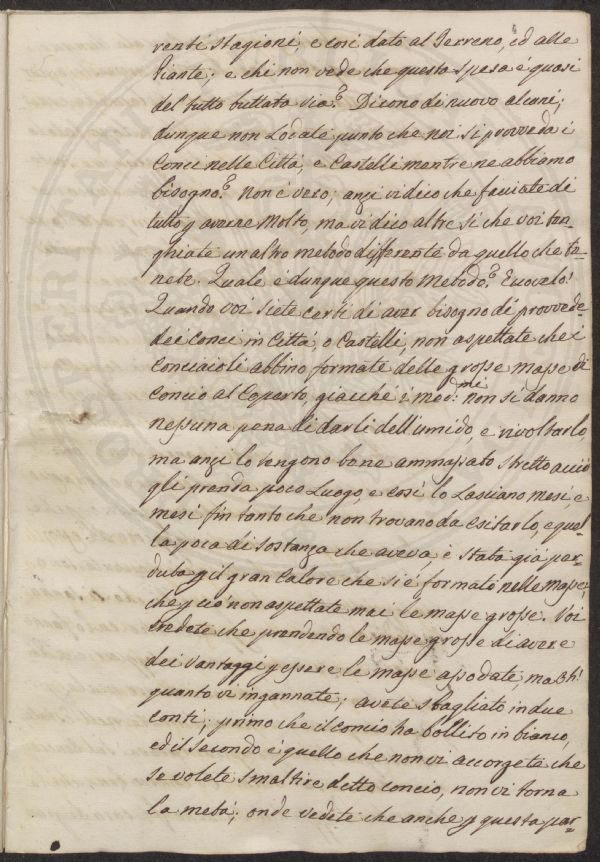 renti Stagioni, e così dato al Terreno, ed alle
Piante; e chi non vede che questa spesa è quasi
del tutto buttata via? Dicono di nuovo alcuni;
dunque non Lodate punto che noi si provveda i
Conci nelle Città, e Castelli mentre ne abbiamo
bisogno? Non è vero; anzi vi dico che facciate di
tutto p averne Molto, ma vi dico altre si che voi ten-
ghiate un altro metodo differente da quello che te-
nete. Quale è dunque questo Metodo? Eccovelo!
Quando voi siete certi di aver bisogno di provvede-
dei Conci in Città, o Castelli, non aspettate che i
Conciaioli abbino formate delle grosse masse di
Concio al Coperto, giacchè i med:mi non si danno
nessuna pena di darli dell'umido, e rivoltarlo,
ma anzi lo tengono bene ammassato stretto acciò
gli prenda poco Luogo, e così lo Lasciano mesi, e
mesi fin tanto che non trovano da Esitarlo, e quel-
la poca di Sostanza che aveva, è stata già per-
duta p il gran Calore che si è formato nelle Masse;
che p ciò non aspettate mai le masse grosse. Voi
credete che prendendo le masse grosse di avere
dei Vantaggi p essere le masse assodate, ma Eh!
quanto vi ingannate; avete sbagliato in due
conti; primo che il concio ha bollito in bianco,
ed il Secondo è quello che non vi accorgete che
se volete smaltire detto concio, non vi torna
la metà; onde vedete che anche p questa par-